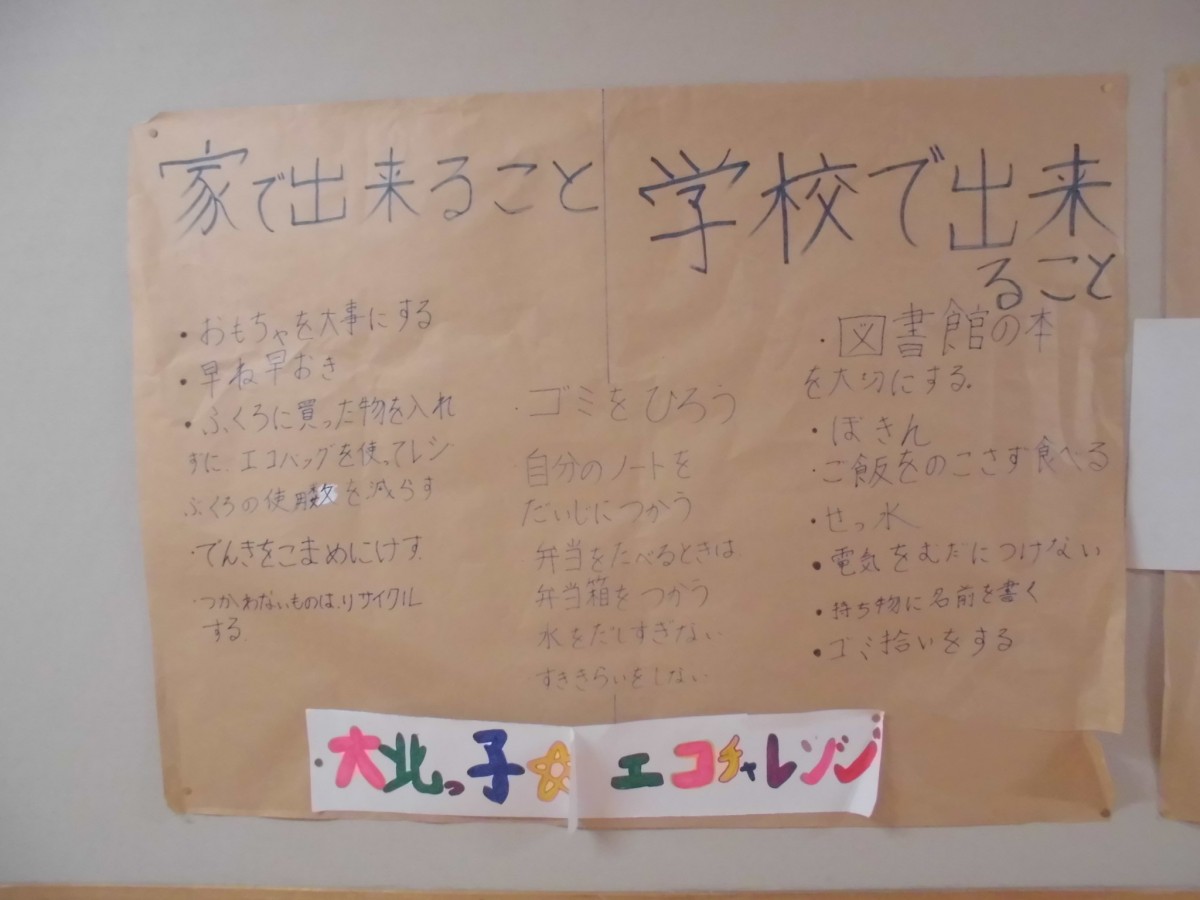 家で出来ること
・おもちゃを大事にする
・早ね早おき
・ふくろに買った物を入れ
ずに、エコバッグを使ってレジ
ぶくろの使用数を減らす
・でんきをこまめにけす
・つかわないものは、リサイクル
する
・ゴミをひろう
自分のノートを
だいじにつかう
弁当をたべるときは
弁当箱をつかう
水をだしすぎない
すききらいをしない
学校で出来
ること
・図書館の本
を大切にする。
・ぼきん
・ご飯をのこさず食べる
・せっ水
・電気をむだにつけない
・持ち物に名前を書く
・ゴミ拾いをする
大北っ子☆エコチャレンジ